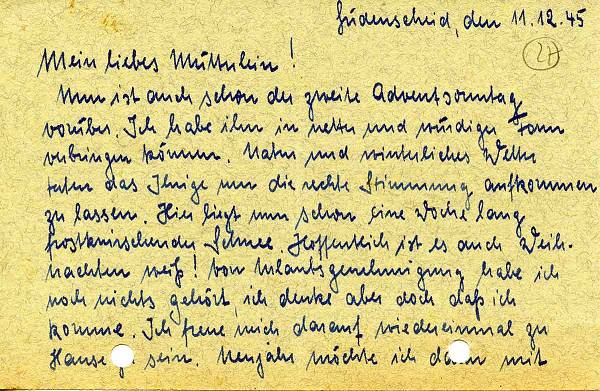 Lüdenscheid, den 11.12.45
27
Mein liebes Mütterlein!
Nun ist auch schon der zweite Adventsonntag
vorüber. Ich habe ihn in netter und würdiger Form
verbringen können. Natur und winterliches Wetter
taten das Ihrige um die rechte Stimmung aufkommen
zu lassen. Hier liegt nun schon eine Woche lang
frostknirschender Schnee. Hoffentlich ist es auch Weih-
nachten weiß! Von Urlaubsgenehmigung habe ich
noch nichts gehört, ich denke aber doch daß ich
komme. Ich freue mich darauf wiedereinmal zu
Hause sein. Neujahr möchte ich dann mit